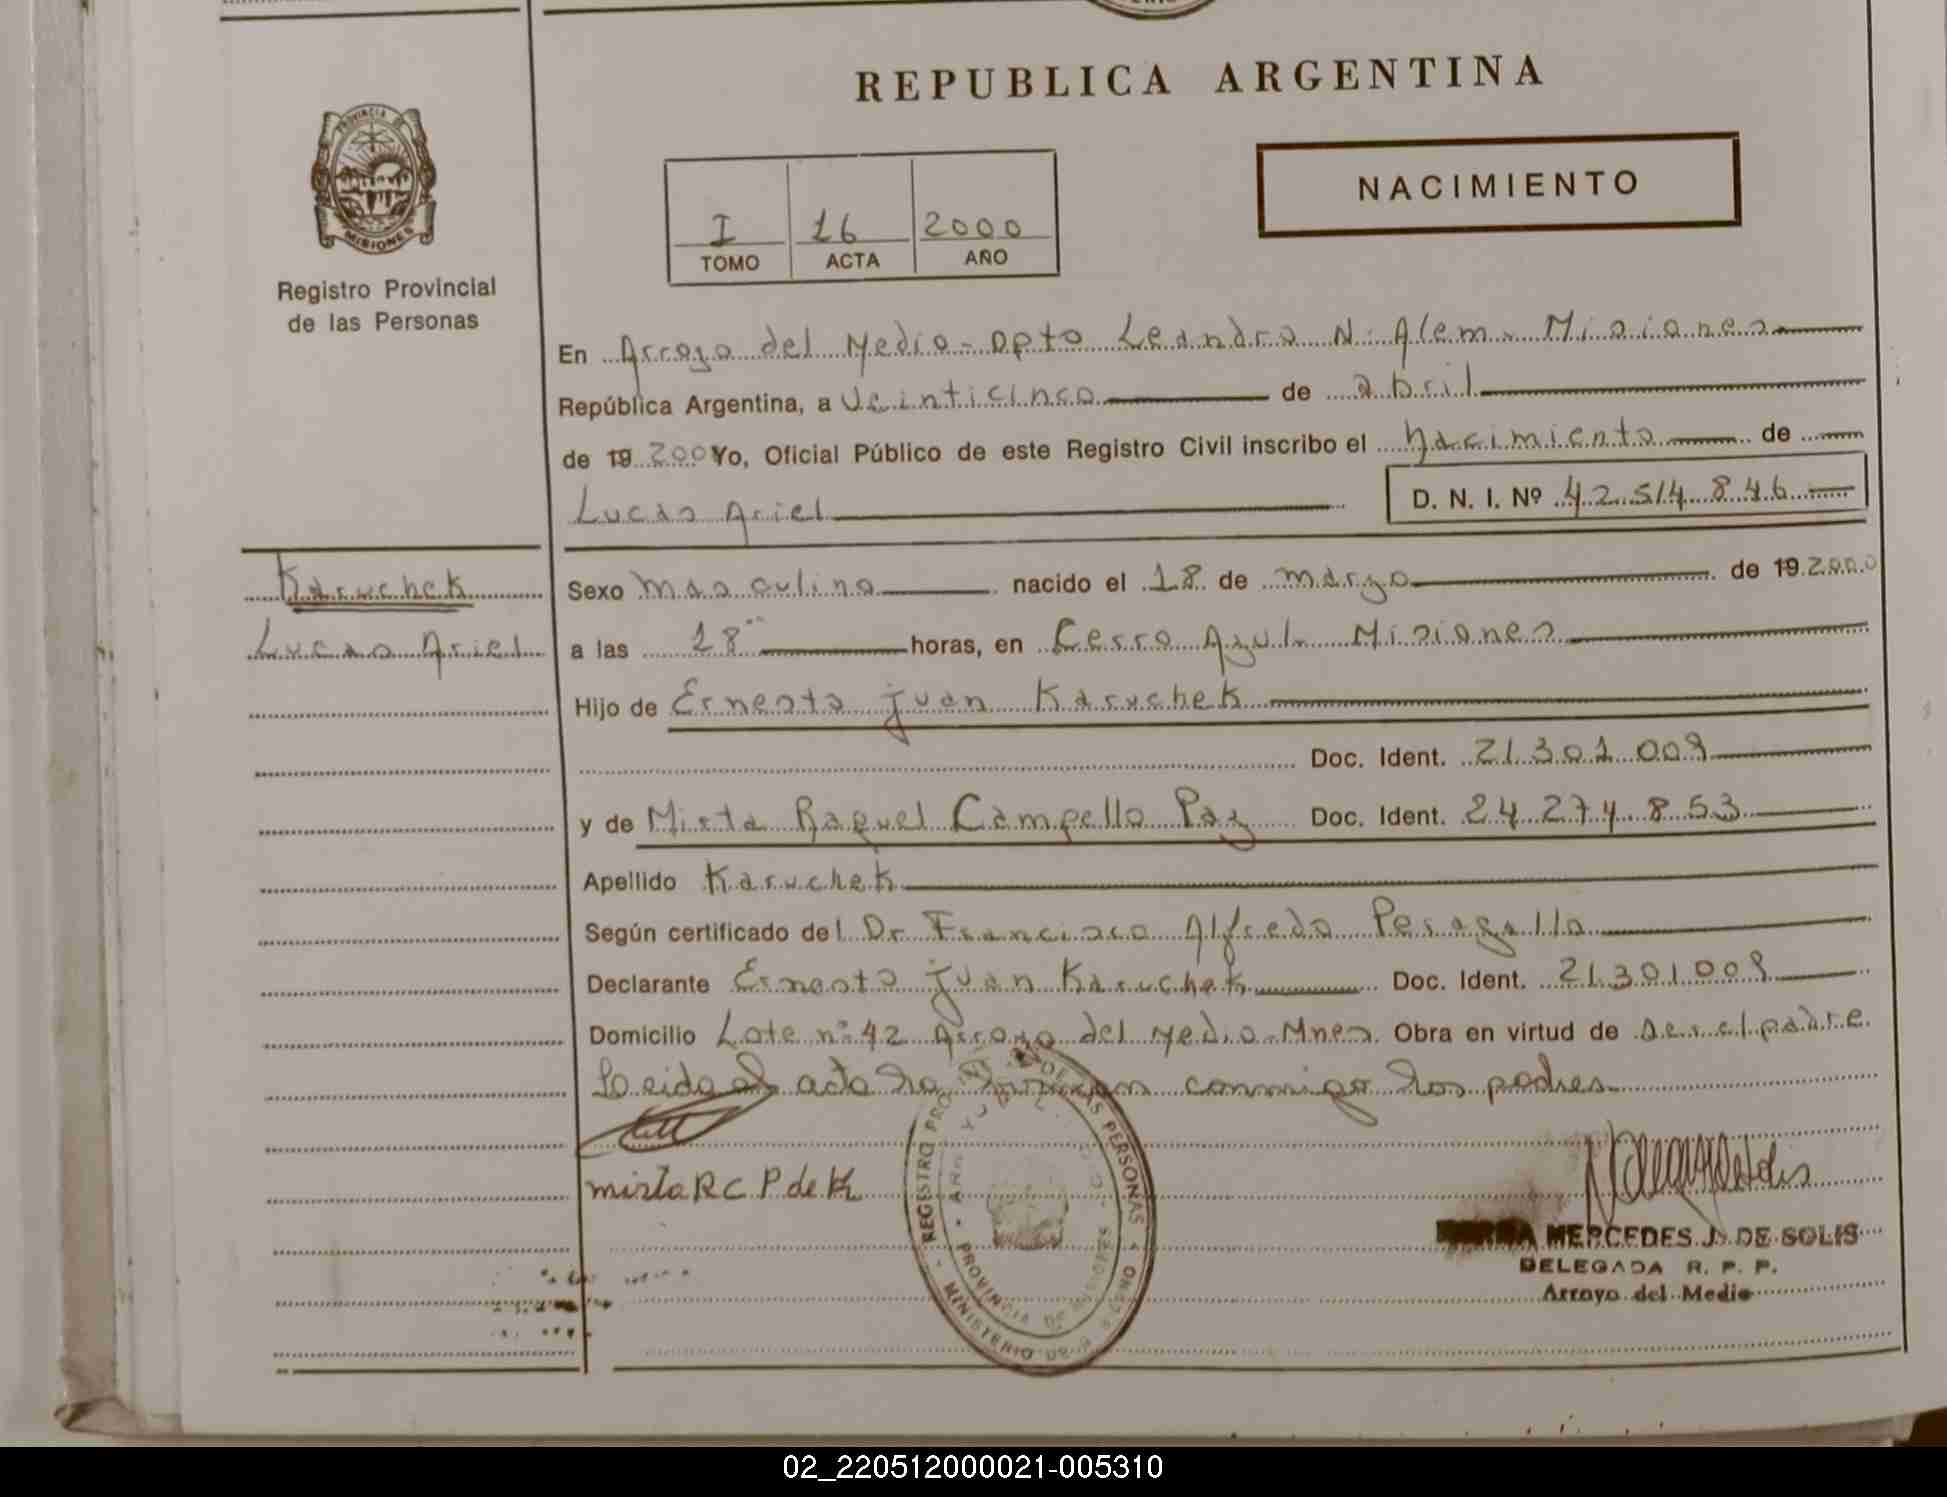 REPUBLICA ARGENTINA
PROVINCIA DE
MISIONES
Registro Provincial
de las Personas
I 16 2000
TOMO ACTA AÑO
NACIMIENTO
En Arroyo del Medio - Dpto Leandro N. Alem - Misiones
República Argentina, a veinticinco de abril
de 19 2000 Yo, Oficial Público de este Registro Civil inscribo el nacimiento de
Lucas Ariel
D. N. I. Nº 42.514.846
Karuchek
Lucas Ariel
Sexo masculino nacido el 18 de marzo de 19 2000
a las 18 horas, en Cerro Azul - Misiones
Hijo de Ernesto Juan Karuchek
Doc. Ident. 21.301.009
y de Mirta Raquel Campello Paz Doc. Ident. 24.274.853
Apellido Karuchek
Según certificado del Dr Francisco Alfredo Peragallo
Declarante Ernesto Juan Karuchek Doc. Ident. 21.301.009
Domicilio Lote nº 42 Arroyo del Medio - Mnes. Obra en virtud de ser el padre
Leida el acta la conmigo los padres
mirta R C P de K
REGISTRO PROVINCIAL DE LAS PERSONAS
MINISTERIO DE
PROVINCIA DE MISIONES
MERCEDES J. DE SOLIS
DELEGADA R. P. P.
Arroyo del Medio
02_220512000021-005310